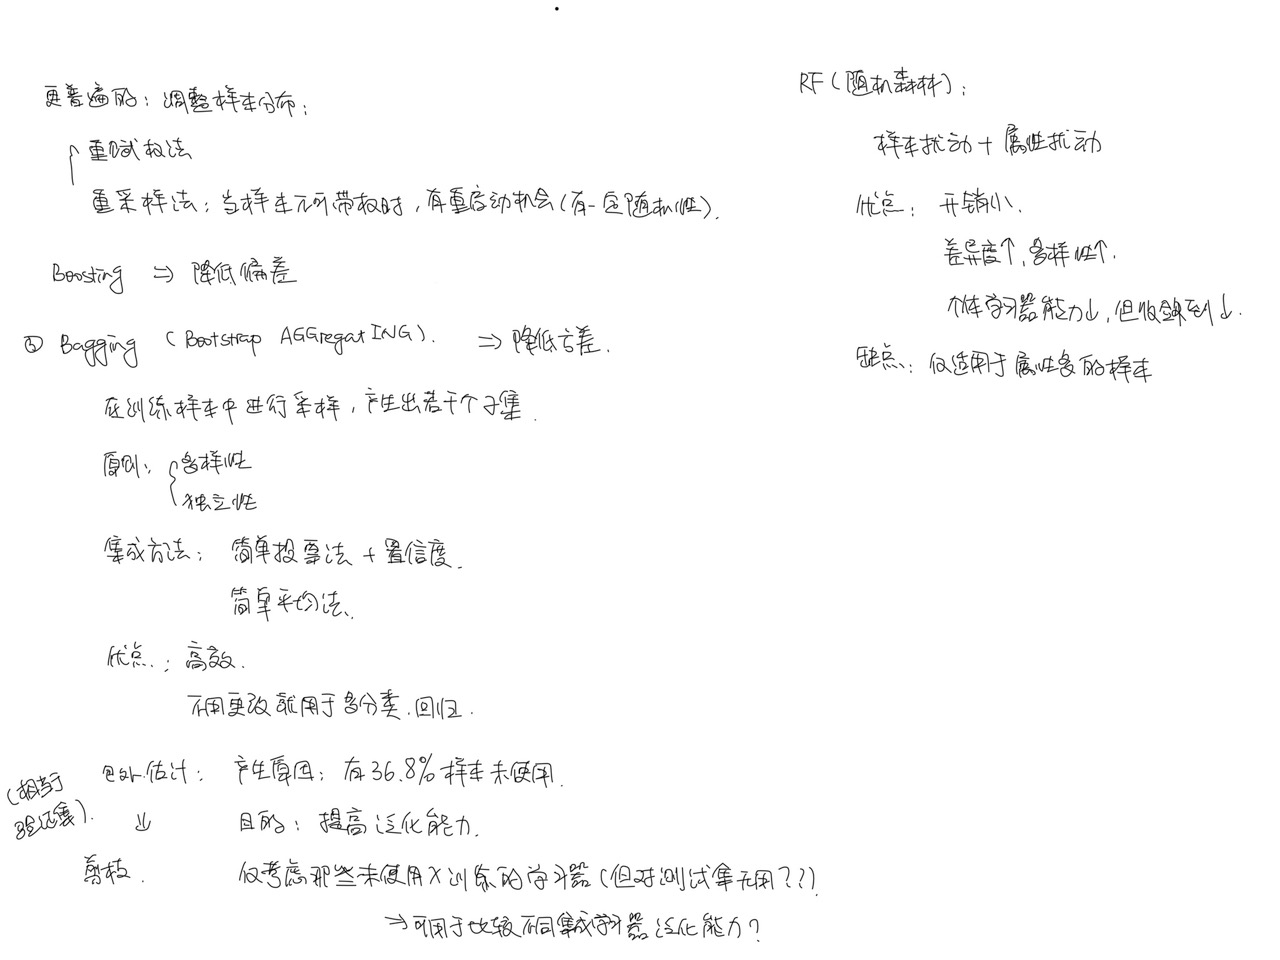 更普遍的：调整样本分布：
重赋权法
重采样法：当样本无所带权时，有重启动机会（有一定随机性）.
Boosting ⇒ 降低偏差
③ Bagging （Bootstrap AGGregatING）. ⇒ 降低方差.
在训练样本中进行采样，产生出若干个子集.
原则： 多样性
独立性
集成方法： 简单投票法 + 置信度.
简单平均法.
优点： 高效.
不用更改就用于多分类、回归.
包外估计： 产生原因：有36.8%样本未使用.
（相当于
验证集）.
↓ 目的：提高泛化能力.
剪枝. 仅考虑那些未使用x训练的学习器（但对测试集无用??）
⇒可用于比较不同集成学习器泛化能力?
RF（随机森林）：
样本扰动 + 属性扰动
优点： 开销小、
差异度↑，多样性↑.
个体学习器能力↓，但收敛到↓.
缺点：仅适用于属性多的样本